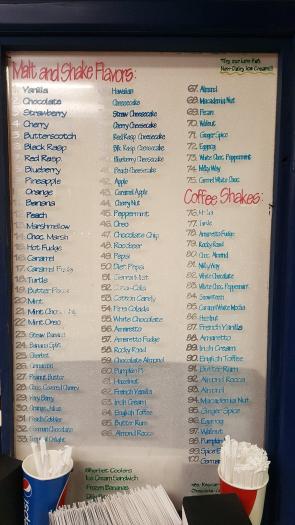 Try our Low Fat
Non-Dairy Ice Cream!!
Malt and Shake Flavors:
1. Vanilla
2. Chocolate
3. Strawberry
4. Cherry
5. Butterscotch
6. Black Rasp
7. Red Rasp
8. Blueberry
9. Pineapple
Orange
Banana
Peach
13. Marshmellow
14. Choc. Marsh
15. Hot Fudge
16. Caramel
17. Caramel Fudge
18. Turtle
19. Butter
20. Mint
21. Mint Choc.
22. Mint Oreo
Straw Banana
24. Banana Split
25. Sherbet
26. Cinnamon
27. Peanut Butter
28. Choc. Covered Cherry
29. Very Berry
30.
31. Peach Cobbler
32. German Chocolate
33. Delight
Hawaiian
Cheesecake
Straw Cheesecake
Cherry Cheesecake
Red Rasp Cheesecake
Blk Rasp Cheesecake
Blueberry Cheesecake
Peach Cheesecake
42. Apple
43. Caramel Apple
44. Cherry Nut
45. Peppermint
46. Oreo
47. Chocolate Chip
48. Rootbeer
49. Pepsi
50. Diet Pepsi
51. Sierra Mist
52.
53. Cotton Candy
54. Pina Colada
55. White Chocolate
56. Amaretto
57. Amaretto Fudge
58. Rocky Road
59. Chocolate Almond
60. Pumpkin Pie
61. Hazelnut
62. French Vanilla
63. Irish Cream
64. English Toffee
65. Butter Rum
66. Almond Roca
67. Almond
68. Macadamia Nut
69. Pecan
70. Walnut
71. Ginger Spice
72. Eggnog
73. White Choc. Peppermint
74. Milky Way
75. Carmel White Choc.
Coffee Shakes:
76. Mocha
77. Turtle
78. Amaretto Fudge
79. Rocky Road
80. Choc. Almond
81. Milky Way
82. White Chocolate
83. White Choc. Peppermint
84.
85. Caramel White Mocha
86. Hazelnut
87. French Vanilla
88. Amaretto
89. Irish Cream
90. English Toffee
91. Butter Rum
92. Almond Rocca
93. Almond
94. Macadamia Nut
95. Ginger Spice
96. Eggnog
97. Walnut
98. Pumpkin
99. Spice
100. German
Sherbet Coolers
Ice Cream Sandwich
Frozen Bananas